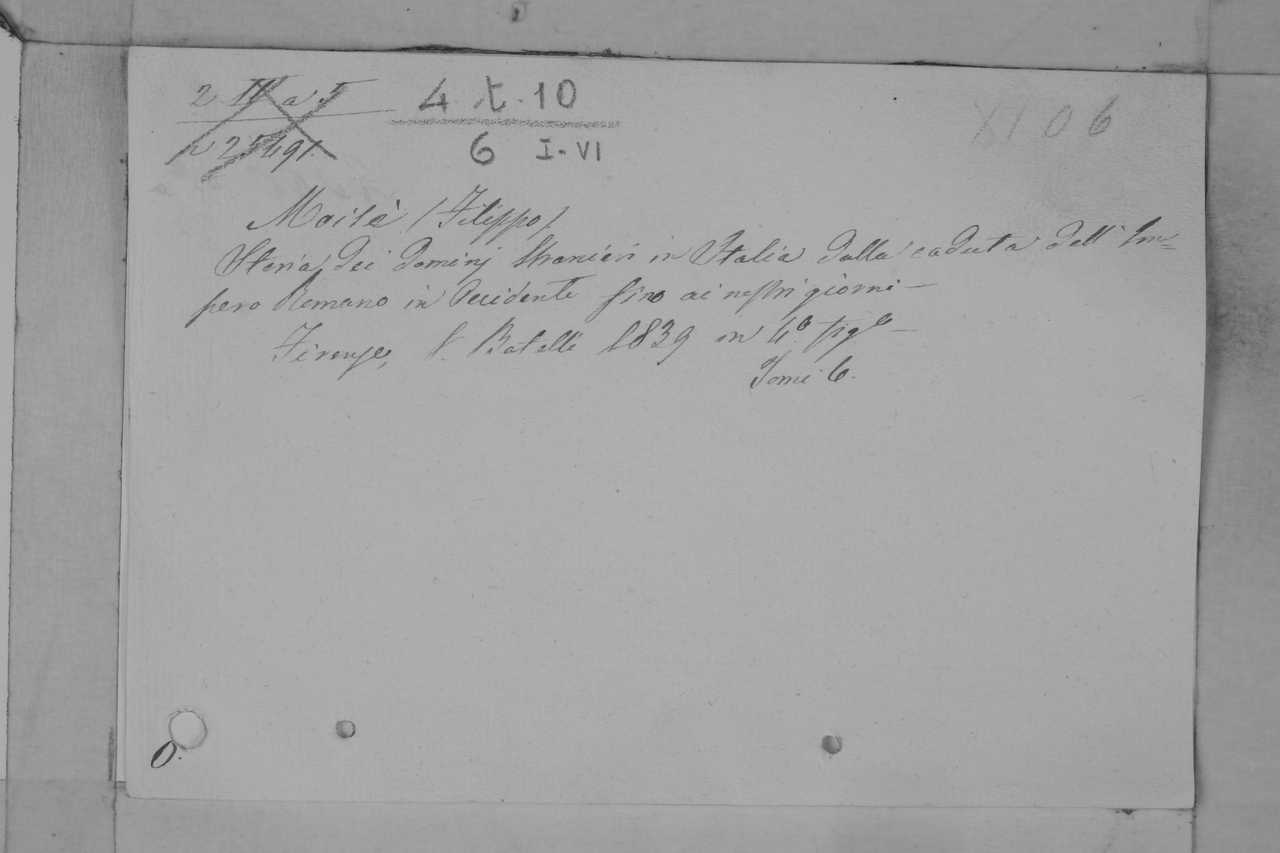 2 II a 5
n 25491
4 t. 10
6 I-VI
XI 0 6
Moisè (Filippo)
Storia dei dominj stranieri in Italia dalla caduta dell' Im=
pero Romano in Occidente fino ai nostri giorni —
Firenze, V. Batelli 1839 in 4º. fig º —
Tomi 6.
O.